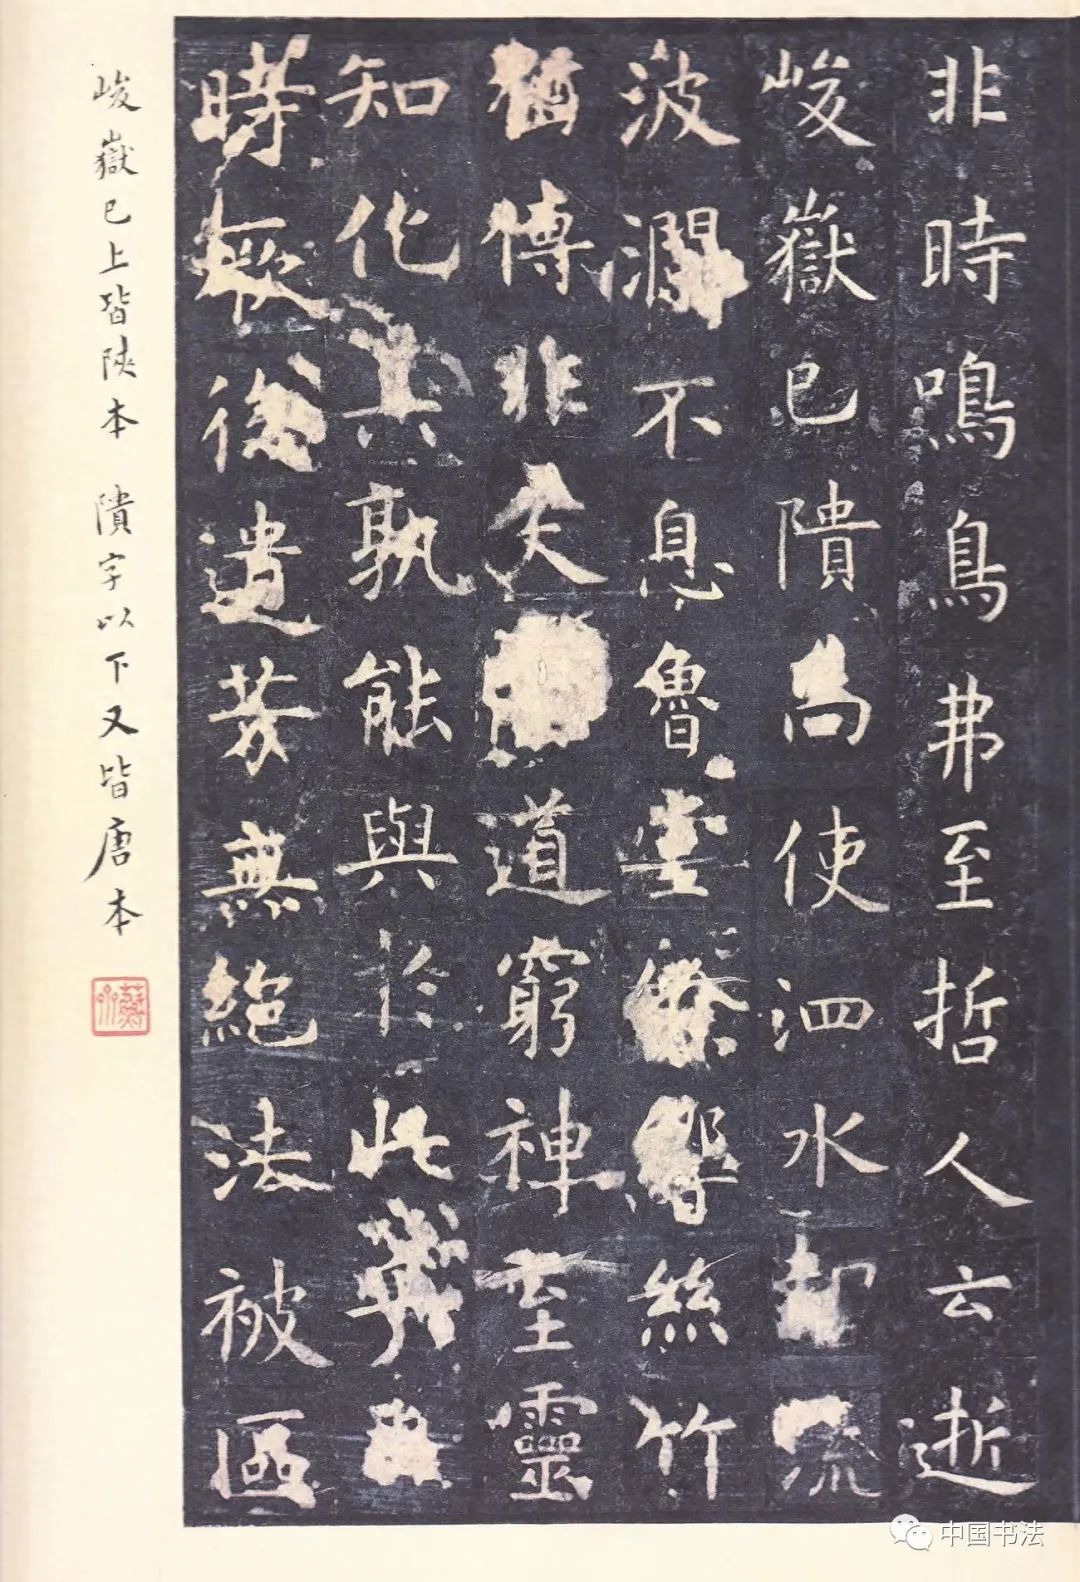 非時鳴鳥弗至哲人云逝
峻嶽已隤尚使泗水却流
波瀾不息魯堂餘響絲竹
猶傳非夫道窮神至靈
知化其孰能與於此乎
時厥後遺芳無絶法被區
峻嶽已上皆陝本 隤字以下又皆唐本
中国书法